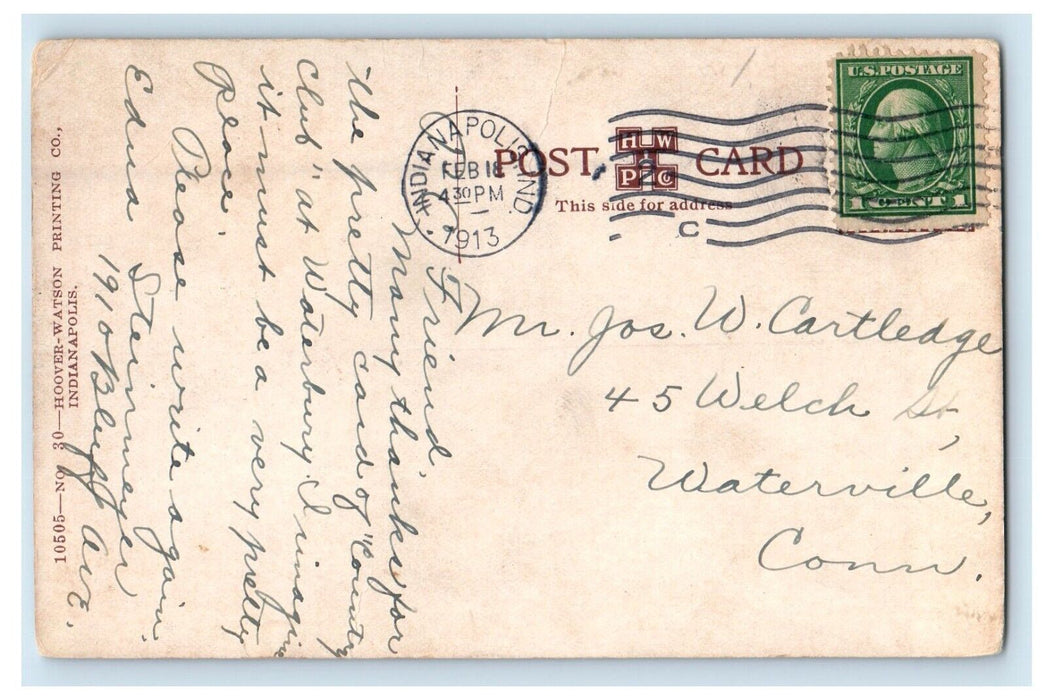 POST CARD
H W
P C
This side for address
INDIANAPOLIS, IND.
FEB 18
4 30 PM
1913
2
C
U.S. POSTAGE
1 CENT 1
Mr. Jos. W. Cartledge
45 Welch St,
Waterville,
Conn.
Friend,
Many thanks for
the pretty card of "Country
Club" at Waterbury. I imagine
it must be a very pretty
place.
Please write again.
Edna Steinmeyer
1910 Bluff Ave.
10505—NO. 30—HOOVER-WATSON PRINTING CO.,
INDIANAPOLIS.